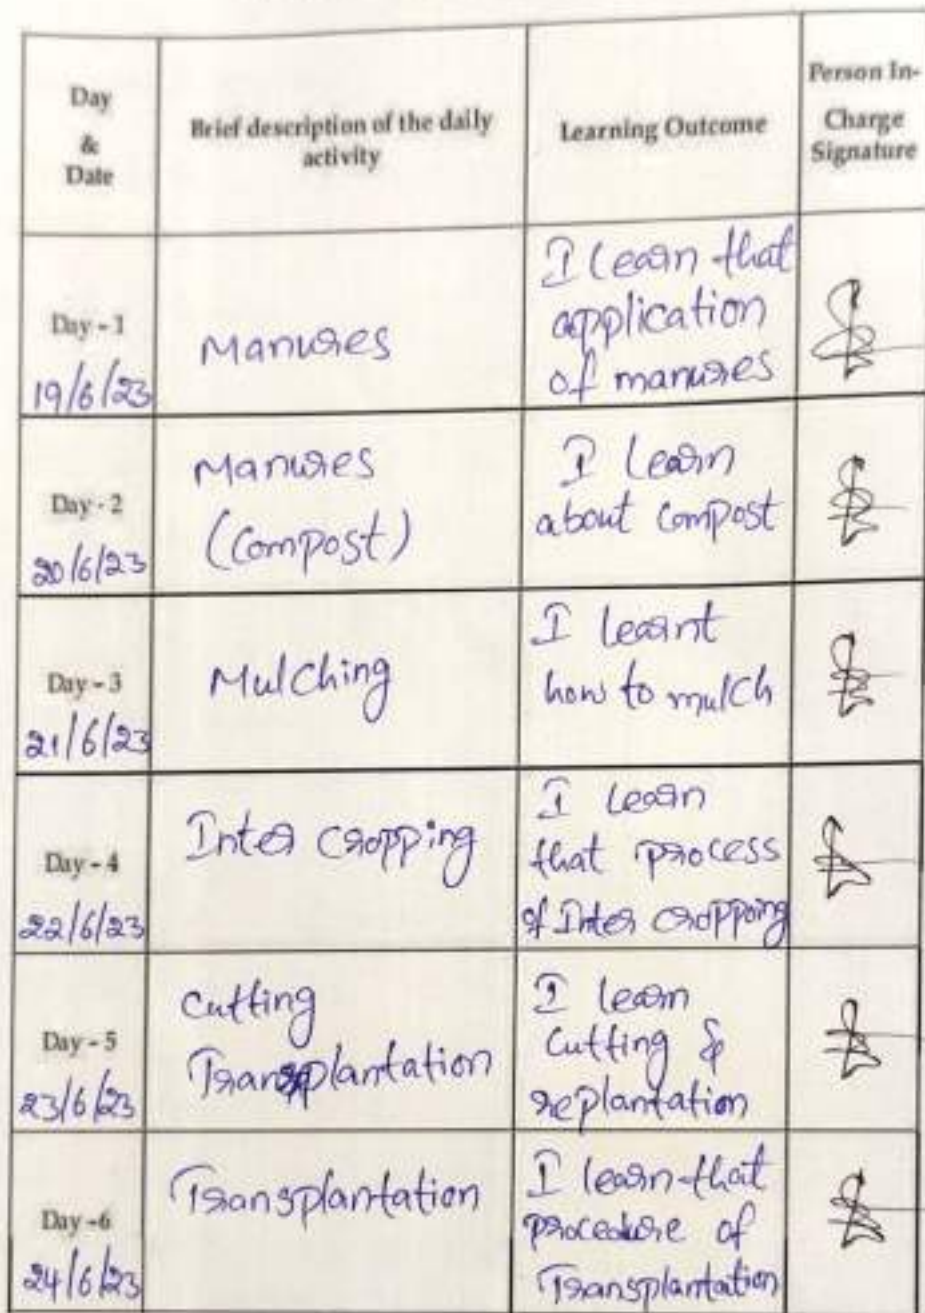 Day
&
Date
Brief description of the daily
activity
Learning Outcome
Person In-
Charge
Signature
Day - 1
19/6/23
Manures
I learn that
application
of manures
Day - 2
20/6/23
Manures
(Compost)
I learn
about compost
Day - 3
21/6/23
Mulching
I learnt
how to mulch
Day - 4
22/6/23
Inter cropping
I learn
that process
of Inter cropping
Day - 5
23/6/23
Cutting
Transplantation
I learn
cutting &
replantation
Day -6
24/6/23
Transplantation
I learn that
procedure of
Transplantation